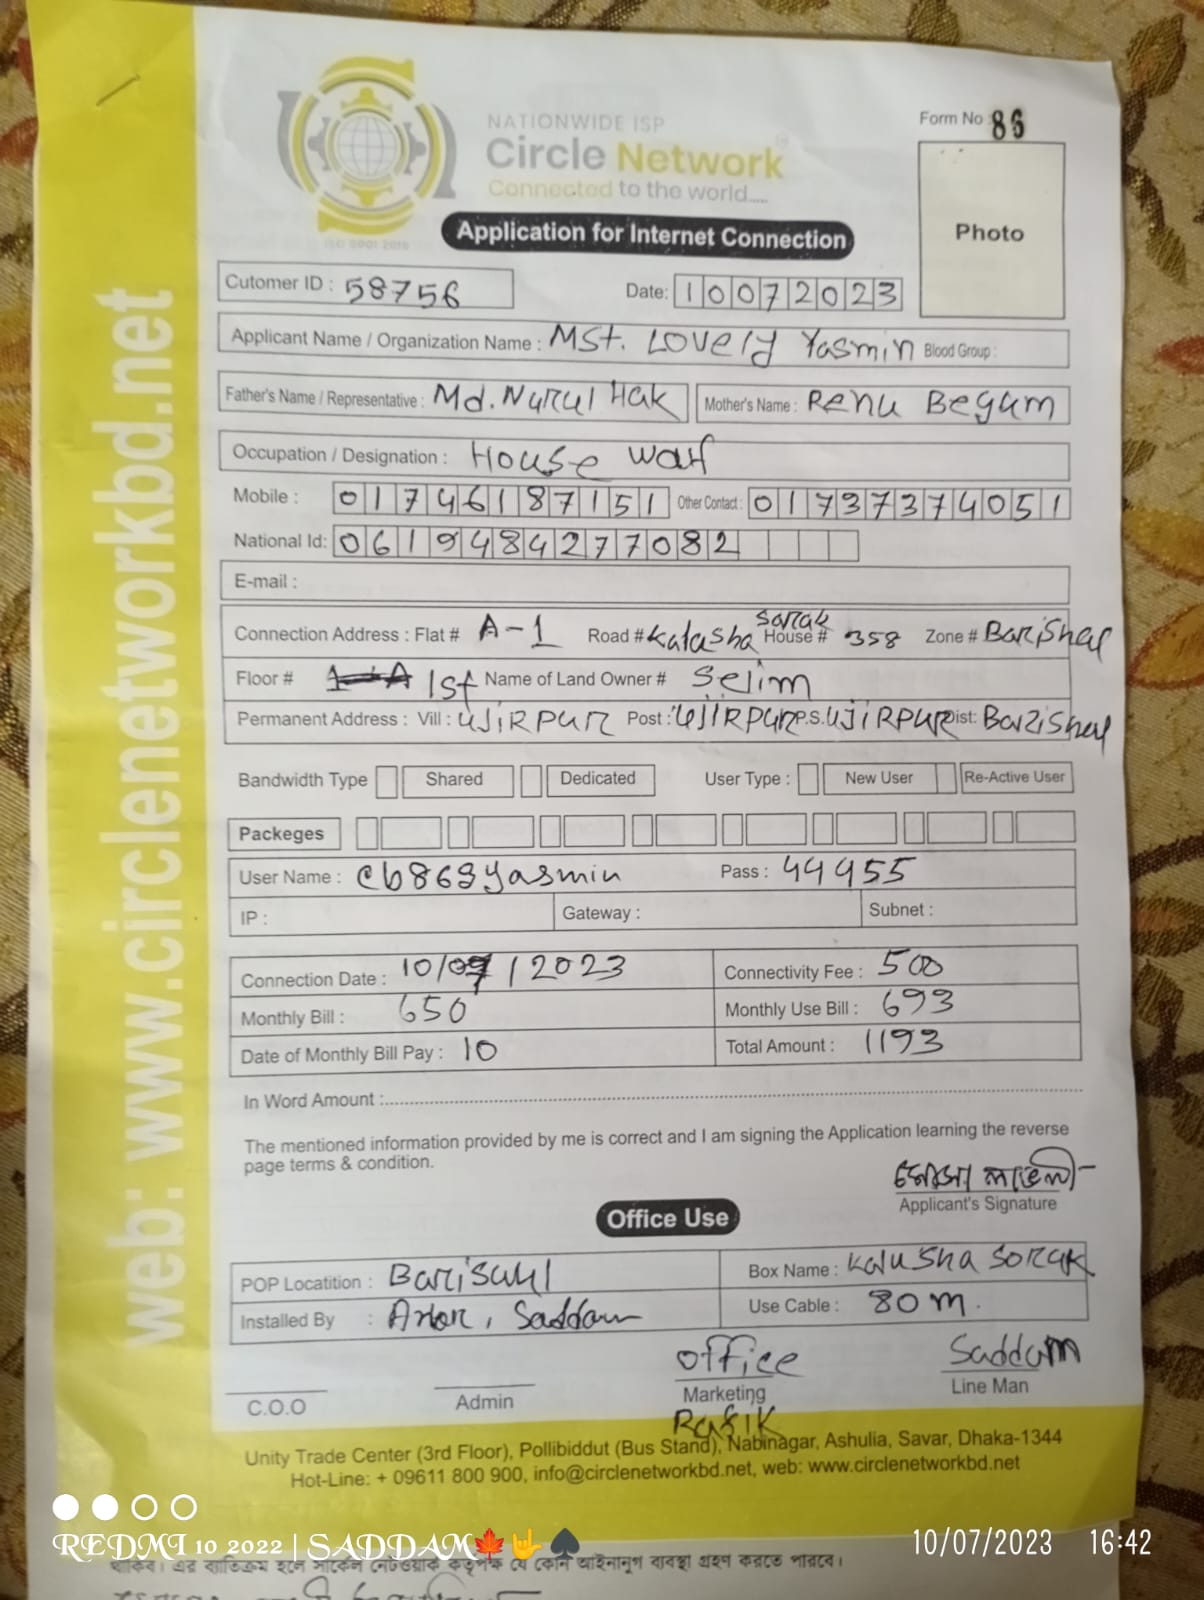 NATIONWIDE ISP
Circle Network
Connected to the world.....
ISO 9001 2015
Form No 86
Photo
Application for Internet Connection
Cutomer ID : 58756 Date: 10072023
Applicant Name / Organization Name : MSt. LOVELY Yasmin Blood Group :
Father's Name / Representative : Md. Nurul Hak Mother's Name : Renu Begum
Occupation / Designation : House waf
Mobile : 01746187151 Other Contact : 01737374051
National Id: 06194842770​82
E-mail :
Connection Address : Flat # A-1 Road # Kalasha Sarak House # 358 Zone # Barishal
Floor # 1st Name of Land Owner # Selim
Permanent Address : Vill : UJiRPUR Post : UJIRPUR P.S. UJiRPUR Dist: Barishal
Bandwidth Type Shared Dedicated User Type : New User Re-Active User
Packeges
User Name : cb863yasmin Pass : 44955
IP : Gateway : Subnet :
Connection Date : 10/07/2023 Connectivity Fee : 500
Monthly Bill : 650 Monthly Use Bill : 693
Date of Monthly Bill Pay : 10 Total Amount : 1193
In Word Amount :
The mentioned information provided by me is correct and I am signing the Application learning the reverse
page terms & condition.
মোসা লাভলী
Applicant's Signature
Office Use
POP Locatition : Barisahl Box Name : Kalusha Sorak
Installed By : Saddam Use Cable : 80 m.
office Saddam
C.O.O Admin Marketing Line Man
Rafik
Unity Trade Center (3rd Floor), Pollibiddut (Bus Stand), Nabinagar, Ashulia, Savar, Dhaka-1344
Hot-Line: + 09611 800 900, info@circlenetworkbd.net, web: www.circlenetworkbd.net
web: www.circlenetworkbd.net
REDMI 10 2022 | SADDAM🍁🤟♠ 10/07/2023 16:42
থাকিব। এর ব্যতিক্রম হলে সার্কেল নেটওয়ার্ক কতৃপক্ষ যে কোন আইনানুগ ব্যবস্থা গ্রহণ করতে পারবে।